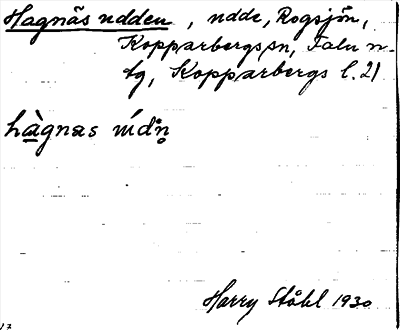 Hagnäsudden, udde, Rogsjön,
Kopparbergs sn, Falu n.
tg, Kopparbergs l. 21
hàgnas
Harry Ståhl 1930
17